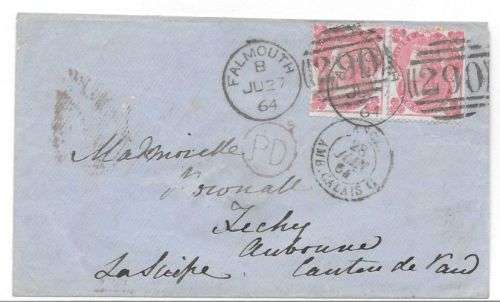 FALMOUTH
B
JU 27
64
290
290
64
PD
AMB. CALAIS
Mademoiselle
Brownall
Fechy
Aubonne
La Suisse Canton de Vaud